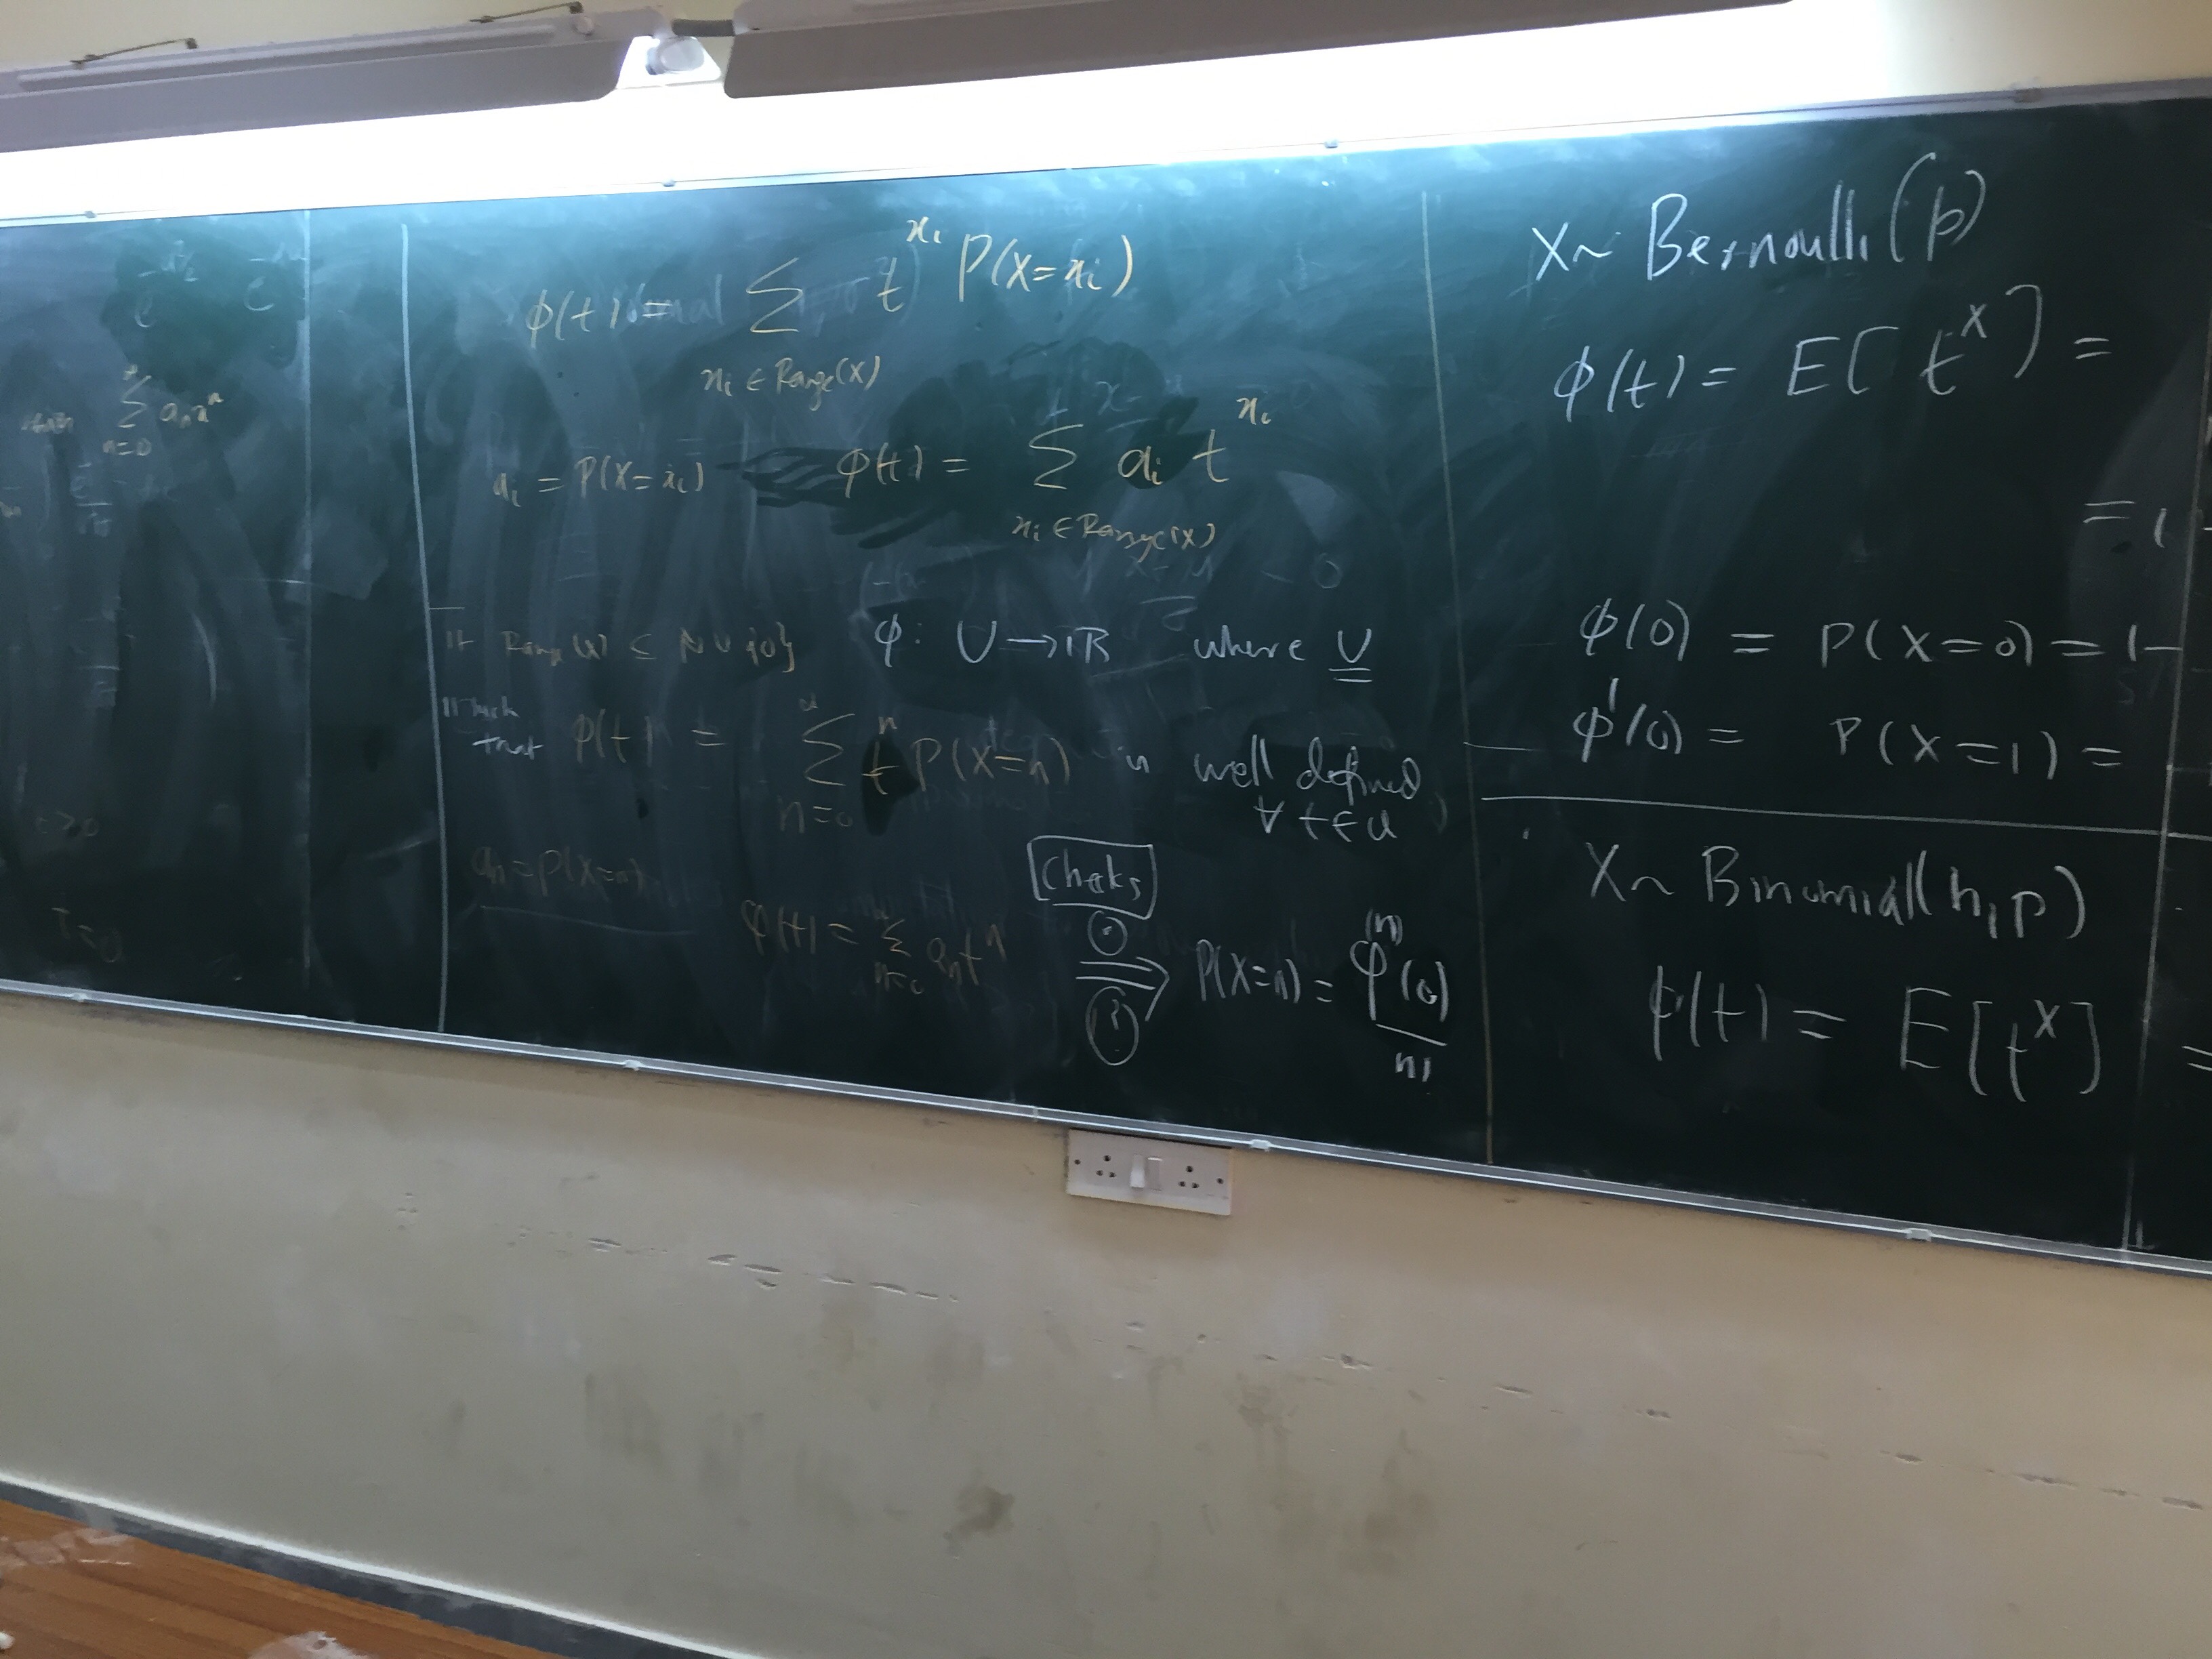 ∑_{n=0}^{∞} a_n x^n
T=0
φ(t) = ∑_{x_i ∈ Range(X)} t^{x_i} P(X=x_i)
a_i = P(X=x_i) φ(t) = ∑_{x_i ∈ Range(X)} a_i t^{x_i}
If Range(X) ⊆ ℕ ∪ {0} φ: U → ℝ where U
that φ(t) = ∑_{n=0}^{∞} t^n P(X=n) is well defined
∀ t ∈ U
a_n = P(X=n)
φ(t) = ∑_{n=0}^{∞} a_n t^n ⟹ P(X=n) = φ^{(n)}(0)/n!
X ~ Bernoulli(p)
φ(t) = E[t^X] =
= 1 -
φ(0) = P(X=0) = 1-
φ'(0) = P(X=1) =
X ~ Binomial(n,p)
φ(t) = E[t^X] =